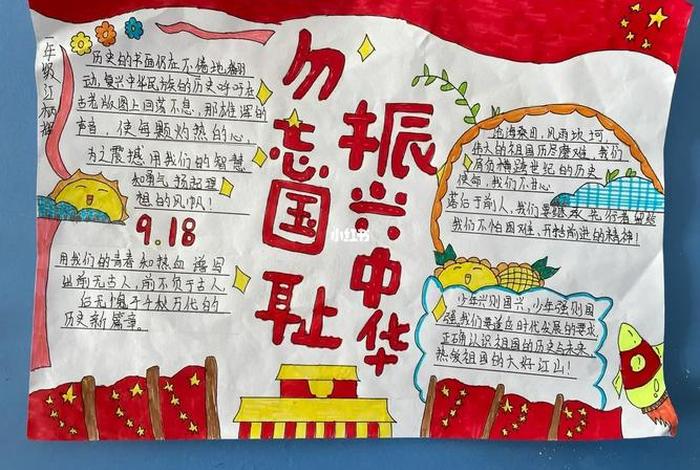 一年级
勿忘国耻
振兴中华
历史的书面仍在不倦地翻
动,复兴中华民族的历史呼吁在
古老版图上回荡不息,那雄浑的
声音,使每颗灼热的心,
为之震撼用我们的智慧
和勇气扬起理
想的风帆!
9.18
用我们的青春和热血谱写
出前无古人,前不负于古人,
后无愧于千秋万代的
历史新篇章。
沧海桑田,风雨坎坷,
伟大的祖国历尽磨难,我们
肩负横跨世纪的历史
使命,我们不甘心
落后于前人,我们要继承先行者
我们不怕困难,开拓前进的精神!
少年兴则国兴,少年强则国
强我们要适应时代发展的要求
正确认识祖国的历史与未来
热爱祖国的大好江山!
小红书